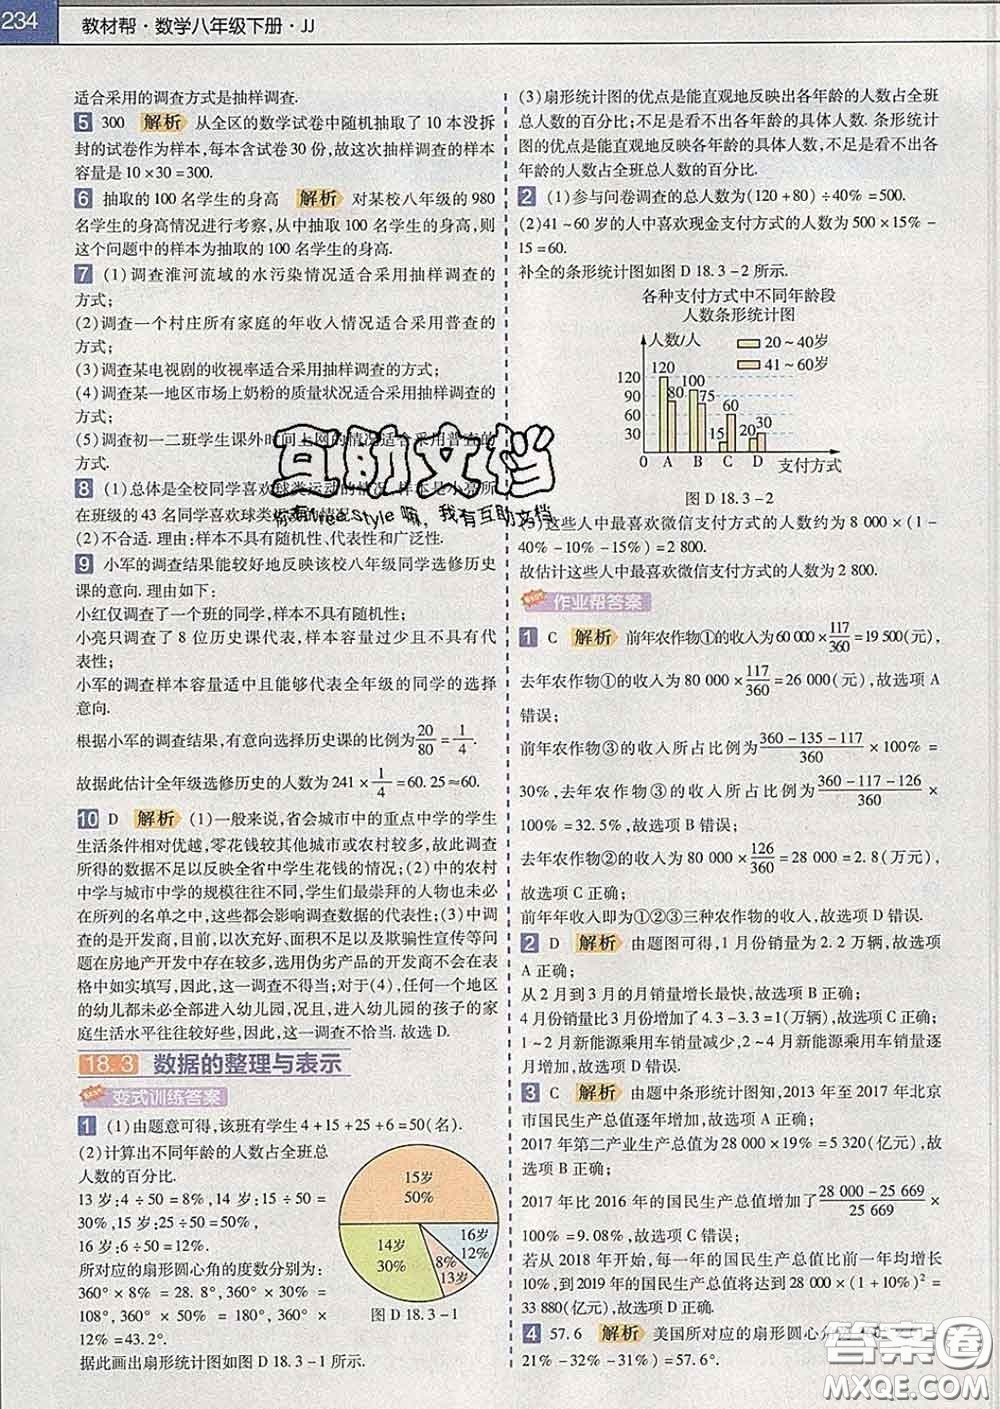 234 教材帮·数学八年级下册·JJ
适合采用的调查方式是抽样调查.
5 300 解析 从全区的数学试卷中随机抽取了 10 本没拆
封的试卷作为样本,每本含试卷 30 份,故这次抽样调查的样本
容量是 10×30=300.
6 抽取的 100 名学生的身高 解析 对某校八年级的 980
名学生的身高情况进行考察,从中抽取 100 名学生的身高,则
这个问题中的样本为抽取的 100 名学生的身高.
7 (1)调查淮河流域的水污染情况适合采用抽样调查的
方式;
(2)调查一个村庄所有家庭的年收入情况适合采用普查的
方式;
(3)调查某电视剧的收视率适合采用抽样调查的方式;
(4)调查某一地区市场上奶粉的质量状况适合采用抽样调查的
方式;
(5)调查初一二班学生课外时间上网的情况适合采用普查的
方式.
8 (1)总体是全校同学喜欢球类运动的情况,样本是小亮所
在班级的 43 名同学喜欢球类
(2)不合适.理由:样本不具有随机性、代表性和广泛性.
9 小军的调查结果能较好地反映该校八年级同学选修历史
课的意向.理由如下:
小红仅调查了一个班的同学,样本不具有随机性;
小亮只调查了 8 位历史课代表,样本容量过少且不具有代
表性;
小军的调查样本容量适中且能够代表全年级的同学的选择
意向.
根据小军的调查结果,有意向选择历史课的比例为20/80=1/4.
故据此估计全年级选修历史的人数为 241×1/4=60.25≈60.
10 D 解析 (1)一般来说,省会城市中的重点中学的学生
生活条件相对优越,零花钱较其他城市或农村较多,故此调查
所得的数据不足以反映全省中学生花钱的情况;(2)中的农村
中学与城市中学的规模往往不同,学生们最崇拜的人物也未必
在所列的名单之中,这些都会影响调查数据的代表性;(3)中调
查的是开发商,目前,以次充好、面积不足以及欺骗性宣传等问
题在房地产开发中存在较多,选用伪劣产品的开发商不会在表
格中如实填写,因此,这一调查不具代表性;对于(4),任何一个地区
的幼儿都未必全部进入幼儿园,况且,进入幼儿园的孩子的家
庭生活水平往往较好些,因此,这一调查不恰当.故选 D.
18.3 数据的整理与表示
变式训练答案
1 (1)由题意可得,该班有学生 4+15+25+6=50(名).
(2)计算出不同年龄的人数占全班总
人数的百分比.
13 岁:4÷50=8%,14 岁:15÷50=
30%,15 岁:25÷50=50%,
16 岁:6÷50=12%.
所对应的扇形圆心角的度数分别为:
360°×8%=28.8°,360°×30%=
108°,360°×50%=180°,360°×
12%=43.2°.
据此画出扇形统计图如图 D 18.3-1 所示.
15岁
50%
14岁
30%
16岁
12%
8%
13岁
图 D 18.3-1
(3)扇形统计图的优点是能直观地反映出各年龄的人数占全班
总人数的百分比;不足是看不出各年龄的具体人数.条形统计
图的优点是能直观地反映各年龄的具体人数,不足是看不出各
年龄的人数占全班总人数的百分比.
2 (1)参与问卷调查的总人数为(120+80)÷40%=500.
(2)41~60 岁的人中喜欢现金支付方式的人数为 500×15%-
15=60.
补全的条形统计图如图 D 18.3-2 所示.
各种支付方式中不同年龄段
人数条形统计图
人数/人
20~40岁
41~60岁
120
90
60
30
0
120 80 100 75 15 60 20 30
A B C D 支付方式
图 D 18.3-2
(3)这些人中最喜欢微信支付方式的人数约为 8 000×(1-
40%-10%-15%)=2 800.
故估计这些人中最喜欢微信支付方式的人数为 2 800.
作业帮答案
1 C 解析 前年农作物①的收入为60 000×117/360=19 500(元),
去年农作物①的收入为 80 000×117/360=26 000(元),故选项 A
错误;
前年农作物③的收入所占比例为(360-135-117)/360×100%=
30%,去年农作物③的收入所占比例为(360-117-126)/360×
100%=32.5%,故选项 B 错误;
去年农作物②的收入为 80 000×126/360=28 000=2.8(万元),
故选项 C 正确;
前年年收入即为①②③三种农作物的收入,故选项 D 错误.
2 D 解析 由题图可得,1 月份销量为 2.2 万辆,故选项
A 正确;
从 2 月到 3 月的月销量增长最快,故选项 B 正确;
4 月份销量比 3 月份增加了 4.3-3.3=1(万辆),故选项 C 正确;
1~2 月新能源乘用车销量减少,2~4 月新能源乘用车销量
增加,故选项 D 错误.
3 C 解析 由题中条形统计图知,2013 年至 2017 年北京
市国民生产总值逐年增加,故选项 A 正确;
2017 年第二产业生产总值为 28 000×19%=5 320(亿元),故
选项 B 正确;
2017 年比 2016 年的国民生产总值增加了(28 000-25 669)/25 669×
100%=9.08%,故选项 C 错误;
若从 2018 年开始,每一年的国民生产总值比前一年均增长
10%,到 2019 年的国民生产总值将达到 28 000×(1+10%)²=
33 880(亿元),故选项 D 正确.
4 57.6 解析 美国所对应的扇形圆心角
21%-32%-31%)=57.6°.
互助文档
你有free style 嘛,我有互助文档
答案圈
MXQE.COM